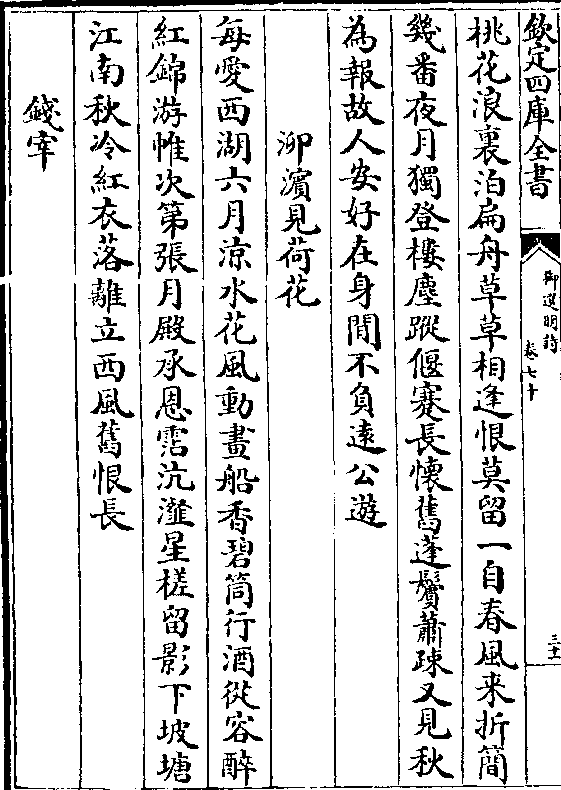 欽定四庫全書
御選明詩
卷七十
桃花浪裏泊扁舟草草相逢恨莫留一自春風来折簡
幾番夜月獨登樓塵蹤偃蹇長懷舊蓬鬢蕭踈又見秋
為報故人安好在身閒不負遠公遊
泖濱見荷花
每愛西湖六月涼水花風動畫船香碧筒行酒從容醉
紅錦游帷次第張月殿承恩霑沆瀣星槎留影下坡塘
江南秋冷紅衣落離立西風舊恨長
錢宰